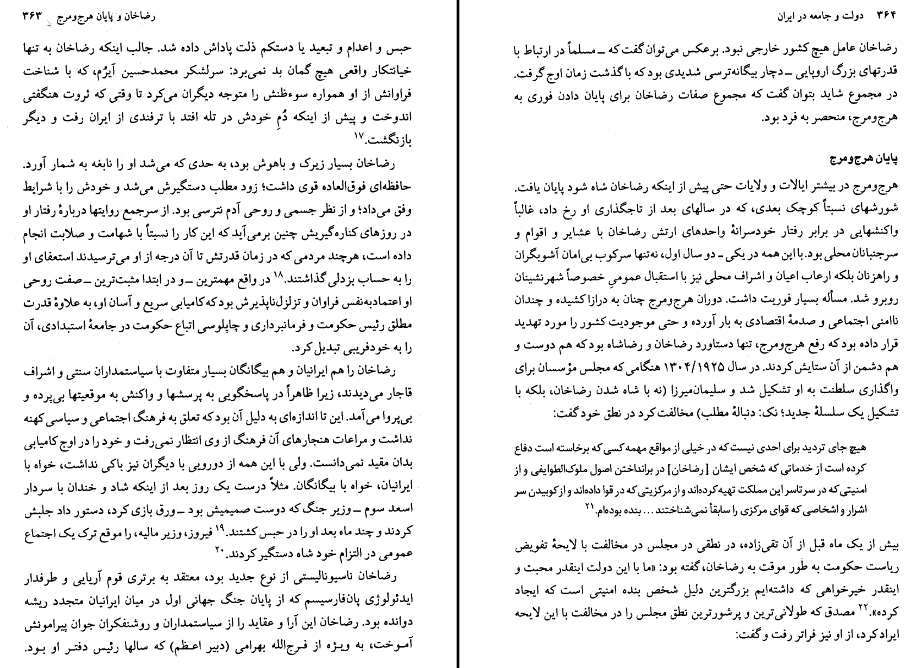 ۳۶۴ دولت و جامعه در ایران
رضاخان عامل هیچ کشور خارجی نبود. برعکس می‌توان گفت که ــ مسلماً در ارتباط با
قدرتهای بزرگ اروپایی ــ دچار بیگانه‌ترسی شدیدی بود که با گذشت زمان اوج گرفت.
در مجموع شاید بتوان گفت که مجموع صفات رضاخان برای پایان دادن فوری به
هرج‌ومرج، منحصر به فرد بود.
پایان هرج‌ومرج
هرج‌ومرج در بیشتر ایالات و ولایات حتی پیش از اینکه رضاخان شاه شود پایان یافت.
شورشهای نسبتاً کوچک بعدی، که در سالهای بعد از تاجگذاری او رخ داد، غالباً
واکنشهایی در برابر رفتار خودسرانهٔ واحدهای ارتش رضاخان با عشایر و اقوام و
سرجنبانان محلی بود. با این همه در یکی ــ دو سال اول، نه‌تنها سرکوب بی‌امان آشوبگران
و راهزنان بلکه ارعاب اعیان و اشراف محلی نیز با استقبال عمومیِ خصوصاً شهرنشینان
روبرو شد. مسأله بسیار فوریت داشت. دوران هرج‌ومرج چنان به درازا کشیده و چندان
ناامنی اجتماعی و صدمهٔ اقتصادی به بار آورده و حتی موجودیت کشور را مورد تهدید
قرار داده بود که رفع هرج‌ومرج، تنها دستاورد رضاخان و رضاشاه بود که هم دوست و
هم دشمن از آن ستایش کردند. در سال ۱۳۰۴/۱۹۲۵ هنگامی که مجلس مؤسسان برای
واگذاری سلطنت به او تشکیل شد و سلیمان‌میرزا (نه با شاه شدن رضاخان، بلکه با
تشکیل یک سلسلهٔ جدید؛ نک: دنبالهٔ مطلب) مخالفت کرد در نطق خود گفت:
هیچ جای تردید برای احدی نیست که در خیلی از مواقع مهمه کسی که برخاسته است دفاع
کرده است از خدماتی که شخص ایشان [رضاخان] در برانداختن اصول ملوک‌الطوایفی و از
امنیتی که در سرتاسر این مملکت تهیه کرده‌اند و از مرکزیتی که در قوا داده‌اند و از کوبیدن سر
اشرار و اشخاصی که قوای مرکزی را سابقاً نمی‌شناختند... بنده بوده‌ام.۲۱
بیش از یک ماه قبل از آن تقی‌زاده، در نطقی در مجلس در مخالفت با لایحهٔ تفویض
ریاست حکومت به طور موقت به رضاخان، گفته بود: «ما با این دولت اینقدر محبت و
اینقدر خیرخواهی که داشته‌ایم بزرگترین دلیل شخص بنده امنیتی است که ایجاد
کرده».۲۲ مصدق که طولانی‌ترین و پرشورترین نطق مجلس را در مخالفت با این لایحه
ایراد کرد، از او نیز فراتر رفت و گفت:
رضاخان و پایان هرج‌ومرج ۳۶۳
حبس و اعدام و تبعید یا دستکم ذلت پاداش داده شد. جالب اینکه رضاخان به تنها
خیانتکار واقعی هیچ گمان بد نمی‌برد: سرلشکر محمدحسین آیرُم، که با شناخت
فراوانش از او همواره سوءظنش را متوجه دیگران می‌کرد تا وقتی که ثروت هنگفتی
اندوخت و پیش از اینکه دُم خودش در تله افتد با ترفندی از ایران رفت و دیگر
بازنگشت.۱۷
رضاخان بسیار زیرک و باهوش بود، به حدی که می‌شد او را نابغه به شمار آورد.
حافظه‌ای فوق‌العاده قوی داشت؛ زود مطلب دستگیرش می‌شد و خودش را با شرایط
وفق می‌داد؛ و از نظر جسمی و روحی آدم نترسی بود. از سرجمع روایتها دربارهٔ رفتار او
در روزهای کناره‌گیریش چنین برمی‌آید که این کار را نسبتاً با شهامت و صلابت انجام
داده است، هرچند مردمی که در زمان قدرتش تا آن درجه از او می‌ترسیدند استعفای او
را به حساب بزدلی گذاشتند.۱۸ در واقع مهمترین ــ و در ابتدا مثبت‌ترین ــ صفت روحی
او اعتمادبه‌نفس فراوان و تزلزل‌ناپذیرش بود که کامیابی سریع و آسان او، به علاوهٔ قدرت
مطلق رئیس حکومت و فرمانبرداری و چاپلوسی اتباع حکومت در جامعهٔ استبدادی، آن
را به خودفریبی تبدیل کرد.
رضاخان را هم ایرانیان و هم بیگانگان بسیار متفاوت با سیاستمداران سنتی و اشراف
قاجار می‌دیدند، زیرا ظاهراً در پاسخگویی به پرسشها و واکنش به موقعیتها بی‌پرده و
بی‌پروا می‌آمد. این تا اندازه‌ای به دلیل آن بود که تعلق به فرهنگ اجتماعی و سیاسی کهنه
نداشت و مراعات هنجارهای آن فرهنگ از وی انتظار نمی‌رفت و خود را در اوج کامیابی
بدان مقید نمی‌دانست. ولی با این همه از دورویی با دیگران نیز باکی نداشت، خواه با
ایرانیان، خواه با بیگانگان. مثلاً درست یک روز بعد از اینکه شاد و خندان با سردار
اسعد سوم ــ وزیر جنگ که دوست صمیمیش بود ــ ورق بازی کرد، دستور داد جلبش
کردند و چند ماه بعد او را در حبس کشتند.۱۹ فیروز، وزیر مالیه، را موقع ترک یک اجتماع
عمومی در التزام خود شاه دستگیر کردند.۲۰
رضاخان ناسیونالیستی از نوع جدید بود، معتقد به برتری قوم آریایی و طرفدار
ایدئولوژی پان‌فارسیسم که از پایان جنگ جهانی اول در میان ایرانیان متجدد ریشه
دوانده بود. رضاخان این آرا و عقاید را از سیاستمداران و روشنفکران جوان پیرامونش
آموخت، به ویژه از فرج‌الله بهرامی (دبیر اعظم) که سالها رئیس دفتر او بود.